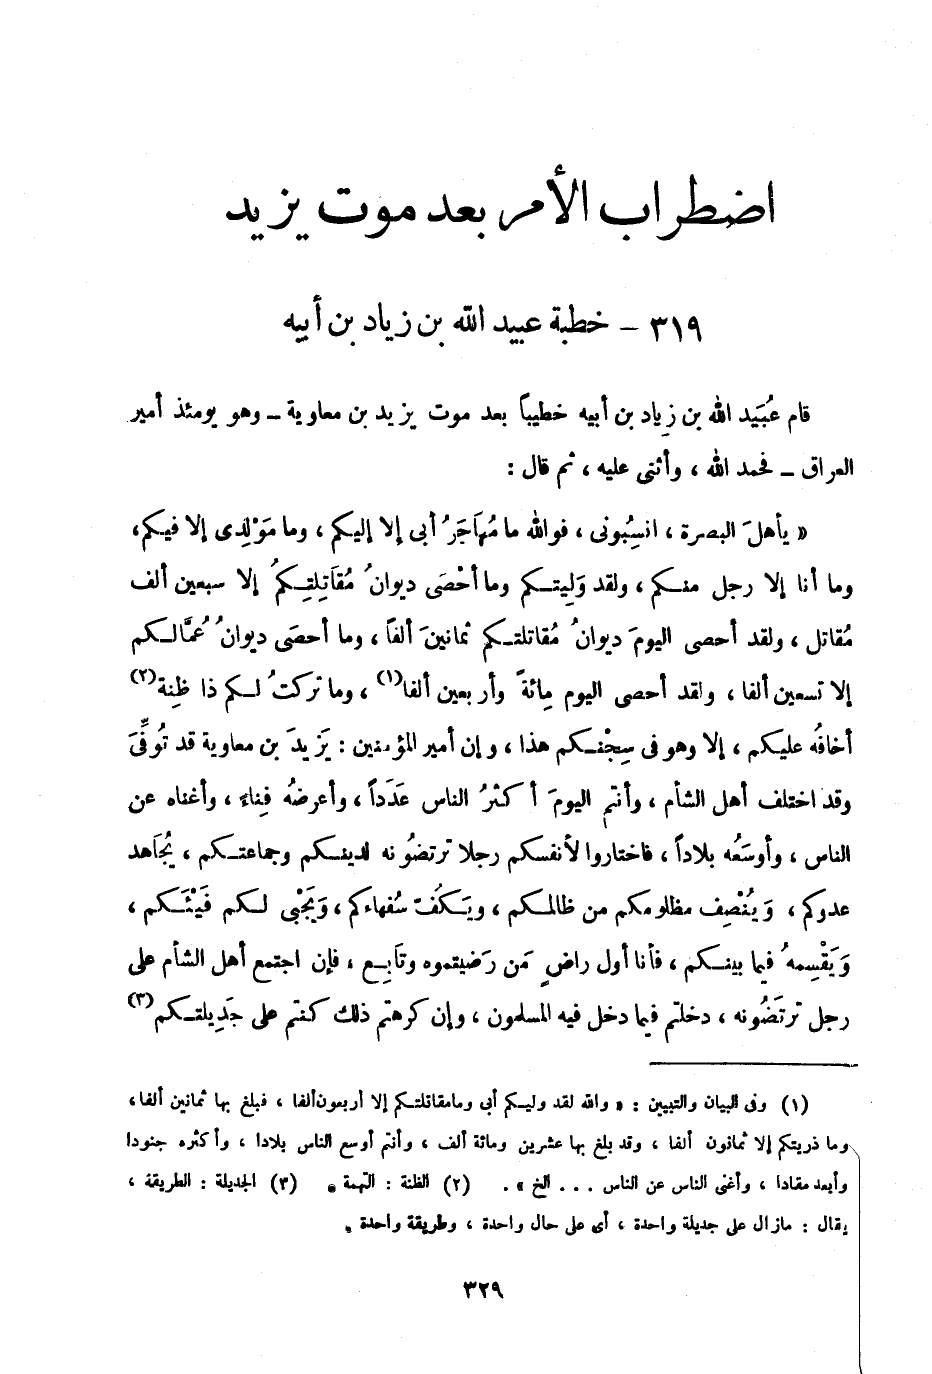 اضطراب الأمر بعد موت يزيد
٣١٩ – خطبة عبيد الله بن زياد بن أبيه
قام عُبَيد الله بن زِياد بن أبيه خطيباً بعد موت يزيد بن معاوية – وهو يومئذ أمير
العراق – فحمد الله ، وأثنى عليه ، ثم قال :
« يأهلَ البصرة ، انسِبُونى ، فوالله ما مُهَاجَرُ أبى إلا إليكم ، وما مَوْلِدى إلا فيكم ،
وما أنا إلا رجل منكم ، ولقد وَلِيتكم وما أحْصَى ديوانُ مُقَاتِلتِكمُ إلا سبعين ألف
مُقاتل ، ولقد أحصى اليومَ ديوانُ مُقاتلتكم ثمانينَ ألفاً ، وما أحصَى ديوانُ عُمَّالكم
إلا تسعين ألفا ، ولقد أحصى اليوم مِائةً وأربعين ألفا(١) ، وما تركتُ لكم ذا ظِنة(٢)
أخافُه عليكم ، إلا وهو فى سِجْنكم هذا ، وإن أمير المؤمنين : يَزيدَ بن معاوية قد تُوفِّىَ
وقد اختلف أهل الشأم ، وأنتم اليومَ أكثرُ الناس عَدَداً ، وأعرضُه فِناء ، وأغناه عن
الناس ، وأوسَعُه بلاداً ، فاختاروا لأنفسكم رجلا ترتضُونه لدينكم وجماعتكم ، يُجَاهد
عدوكم ، وَيُنْصِف مظلومكم من ظالمكم ، ويَكُفّ سُفهاءكم ، وَيَجْبِى لكم فَيْئَكم ،
وَيَقْسِمهُ فيما بينكم ، فأنا أول راضٍ مَن رَضيتموه وتَابع ، فإن اجتمع أهل الشأم على
رجل ترتَضُونه ، دخلتم فيما دخل فيه المسلمون ، وإن كرهتم ذلك كنتم على جَدِيلتكم(٣)
(١) وفى البيان والتبيين : « والله لقد وليكم أبى ومامقاتلتكم إلا أربعون ألفا ، فبلغ بها ثمانين ألفا ،
وما ذريتكم إلا ثمانون ألفا ، وقد بلغ بها عشرين ومائة ألف ، وأنتم أوسع الناس بلادا ، وأكثره جنودا
وأبعد مقادا ، وأغنى الناس عن الناس ... الخ » . (٢) الظنة : التهمة . (٣) الجديلة : الطريقة ،
يقال : مازال على جديلة واحدة ، أى على حال واحدة ، وطريقة واحدة .
٣٢٩